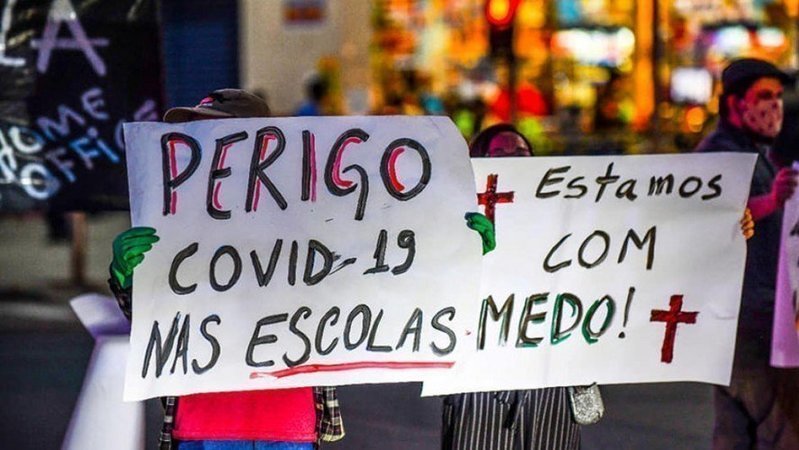 HOME
OFFICE
PERIgO
COVID-19
NAS ESCOLAS
Estamos
COM
MEDO!